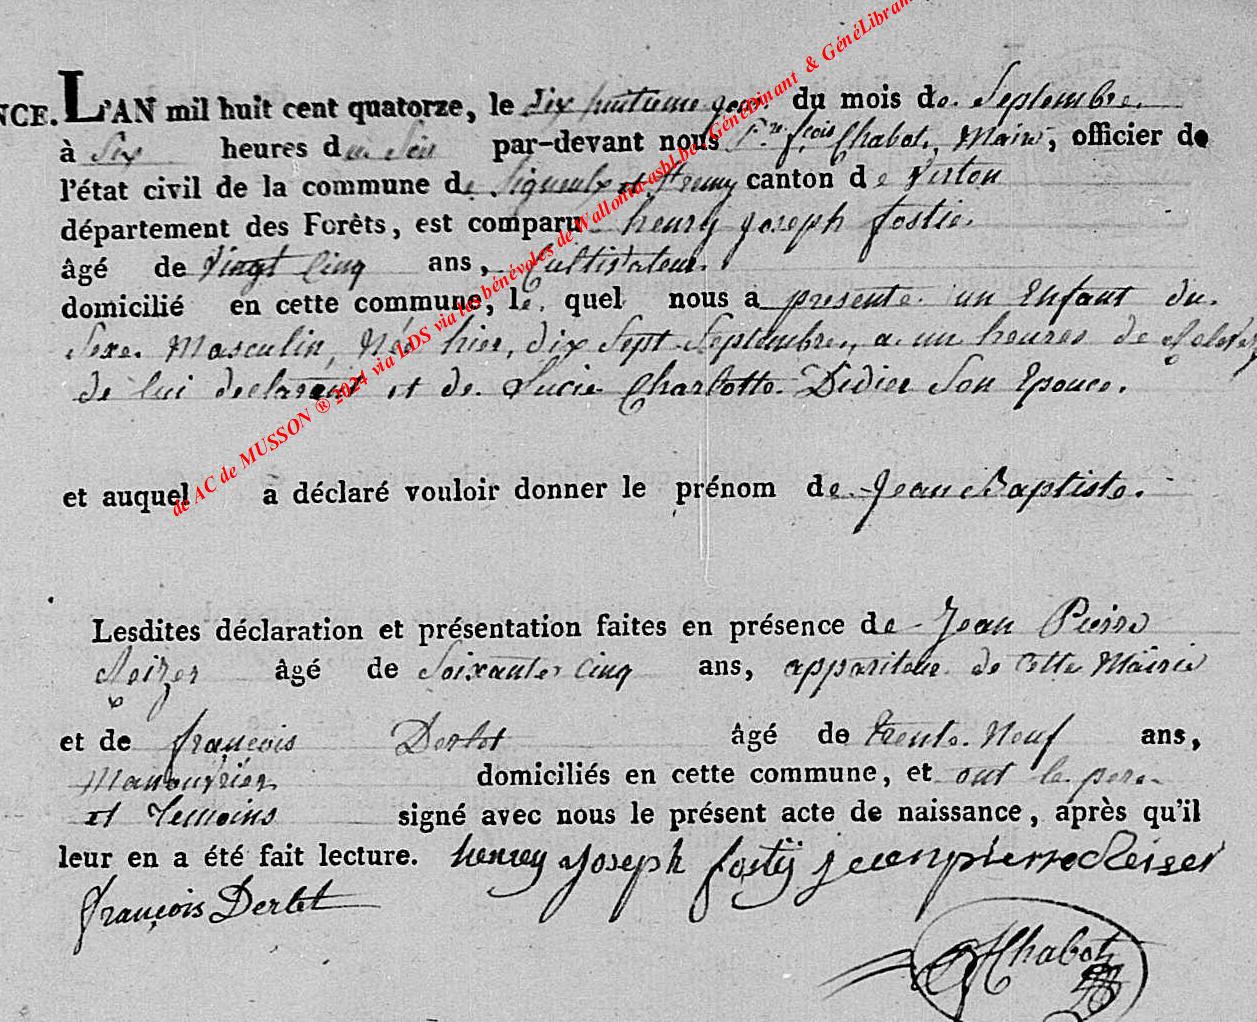 NCE. L'AN mil huit cent quatorze, le dix huitieme jour du mois de Septembre.
à Six heures du Soir par-devant nous fçois Chabot, Maire, officier de
l'état civil de la commune de Signeulx et canton de Virton
département des Forêts, est comparu henry joseph fostie.
âgé de Vingt Cinq ans, Cultivateur.
domicilié en cette commune, le quel nous a presente un Enfant du
Sexe Masculin, Né hier, dix Sept Septembre, a un heures de
de lui declarent et de Lucie Charlotte Didier Son Epouce.
et auquel a déclaré vouloir donner le prénom de Jean Baptiste.
Lesdites déclaration et présentation faites en présence de Jean Pierre
Reizer âgé de Soixante Cinq ans, appariteur de cette Mairie
et de françois Derlet âgé de trente Neuf ans,
Manouvrier domiciliés en cette commune, et ont le pere
et Temoins signé avec nous le présent acte de naissance, après qu'il
leur en a été fait lecture. henry joseph fostij jeenpierre Reiser
françois Derlet
Chabot
de AC de MUSSON ® 2024 via LDS via les bénévoles de Wallonia-asbl.be, GénéDinant & GénéLibram